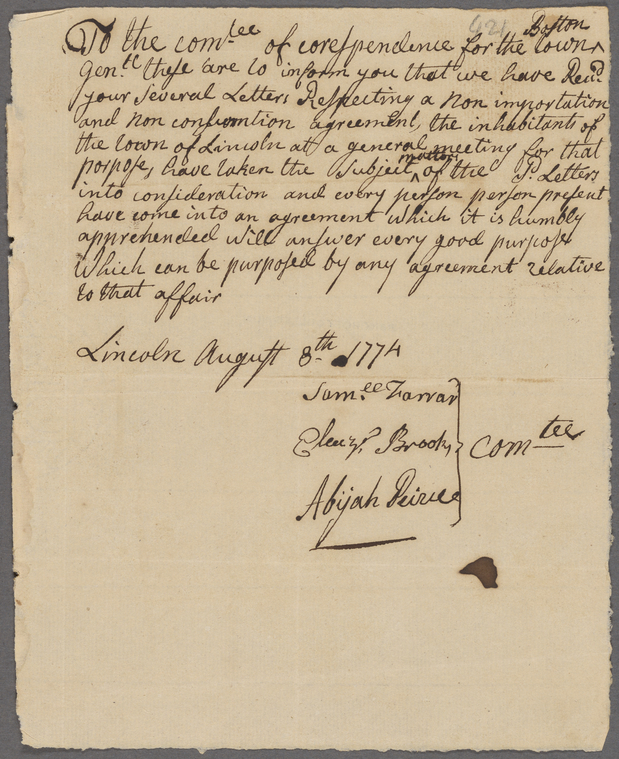 421
To the comtee of corespondence for the town ^ Boston
Gentle these are to inform you that we have Recd
your Several Letters Respecting a Non importation
and non consumtion agreement, the inhabitants of
the town of Lincoln at a general meeting for that
porpose, have taken the Subject ^ matter of the Sd. Letters
into consideration and every person person present
have come into an agreement which it is humbly
apprehended will answer every good purpose
which can be purposed by any agreement relative
to that affair
Lincoln August 8th 1774
Samll Farrar
Eleazr Brooks
Abijah Peirce
Comtee